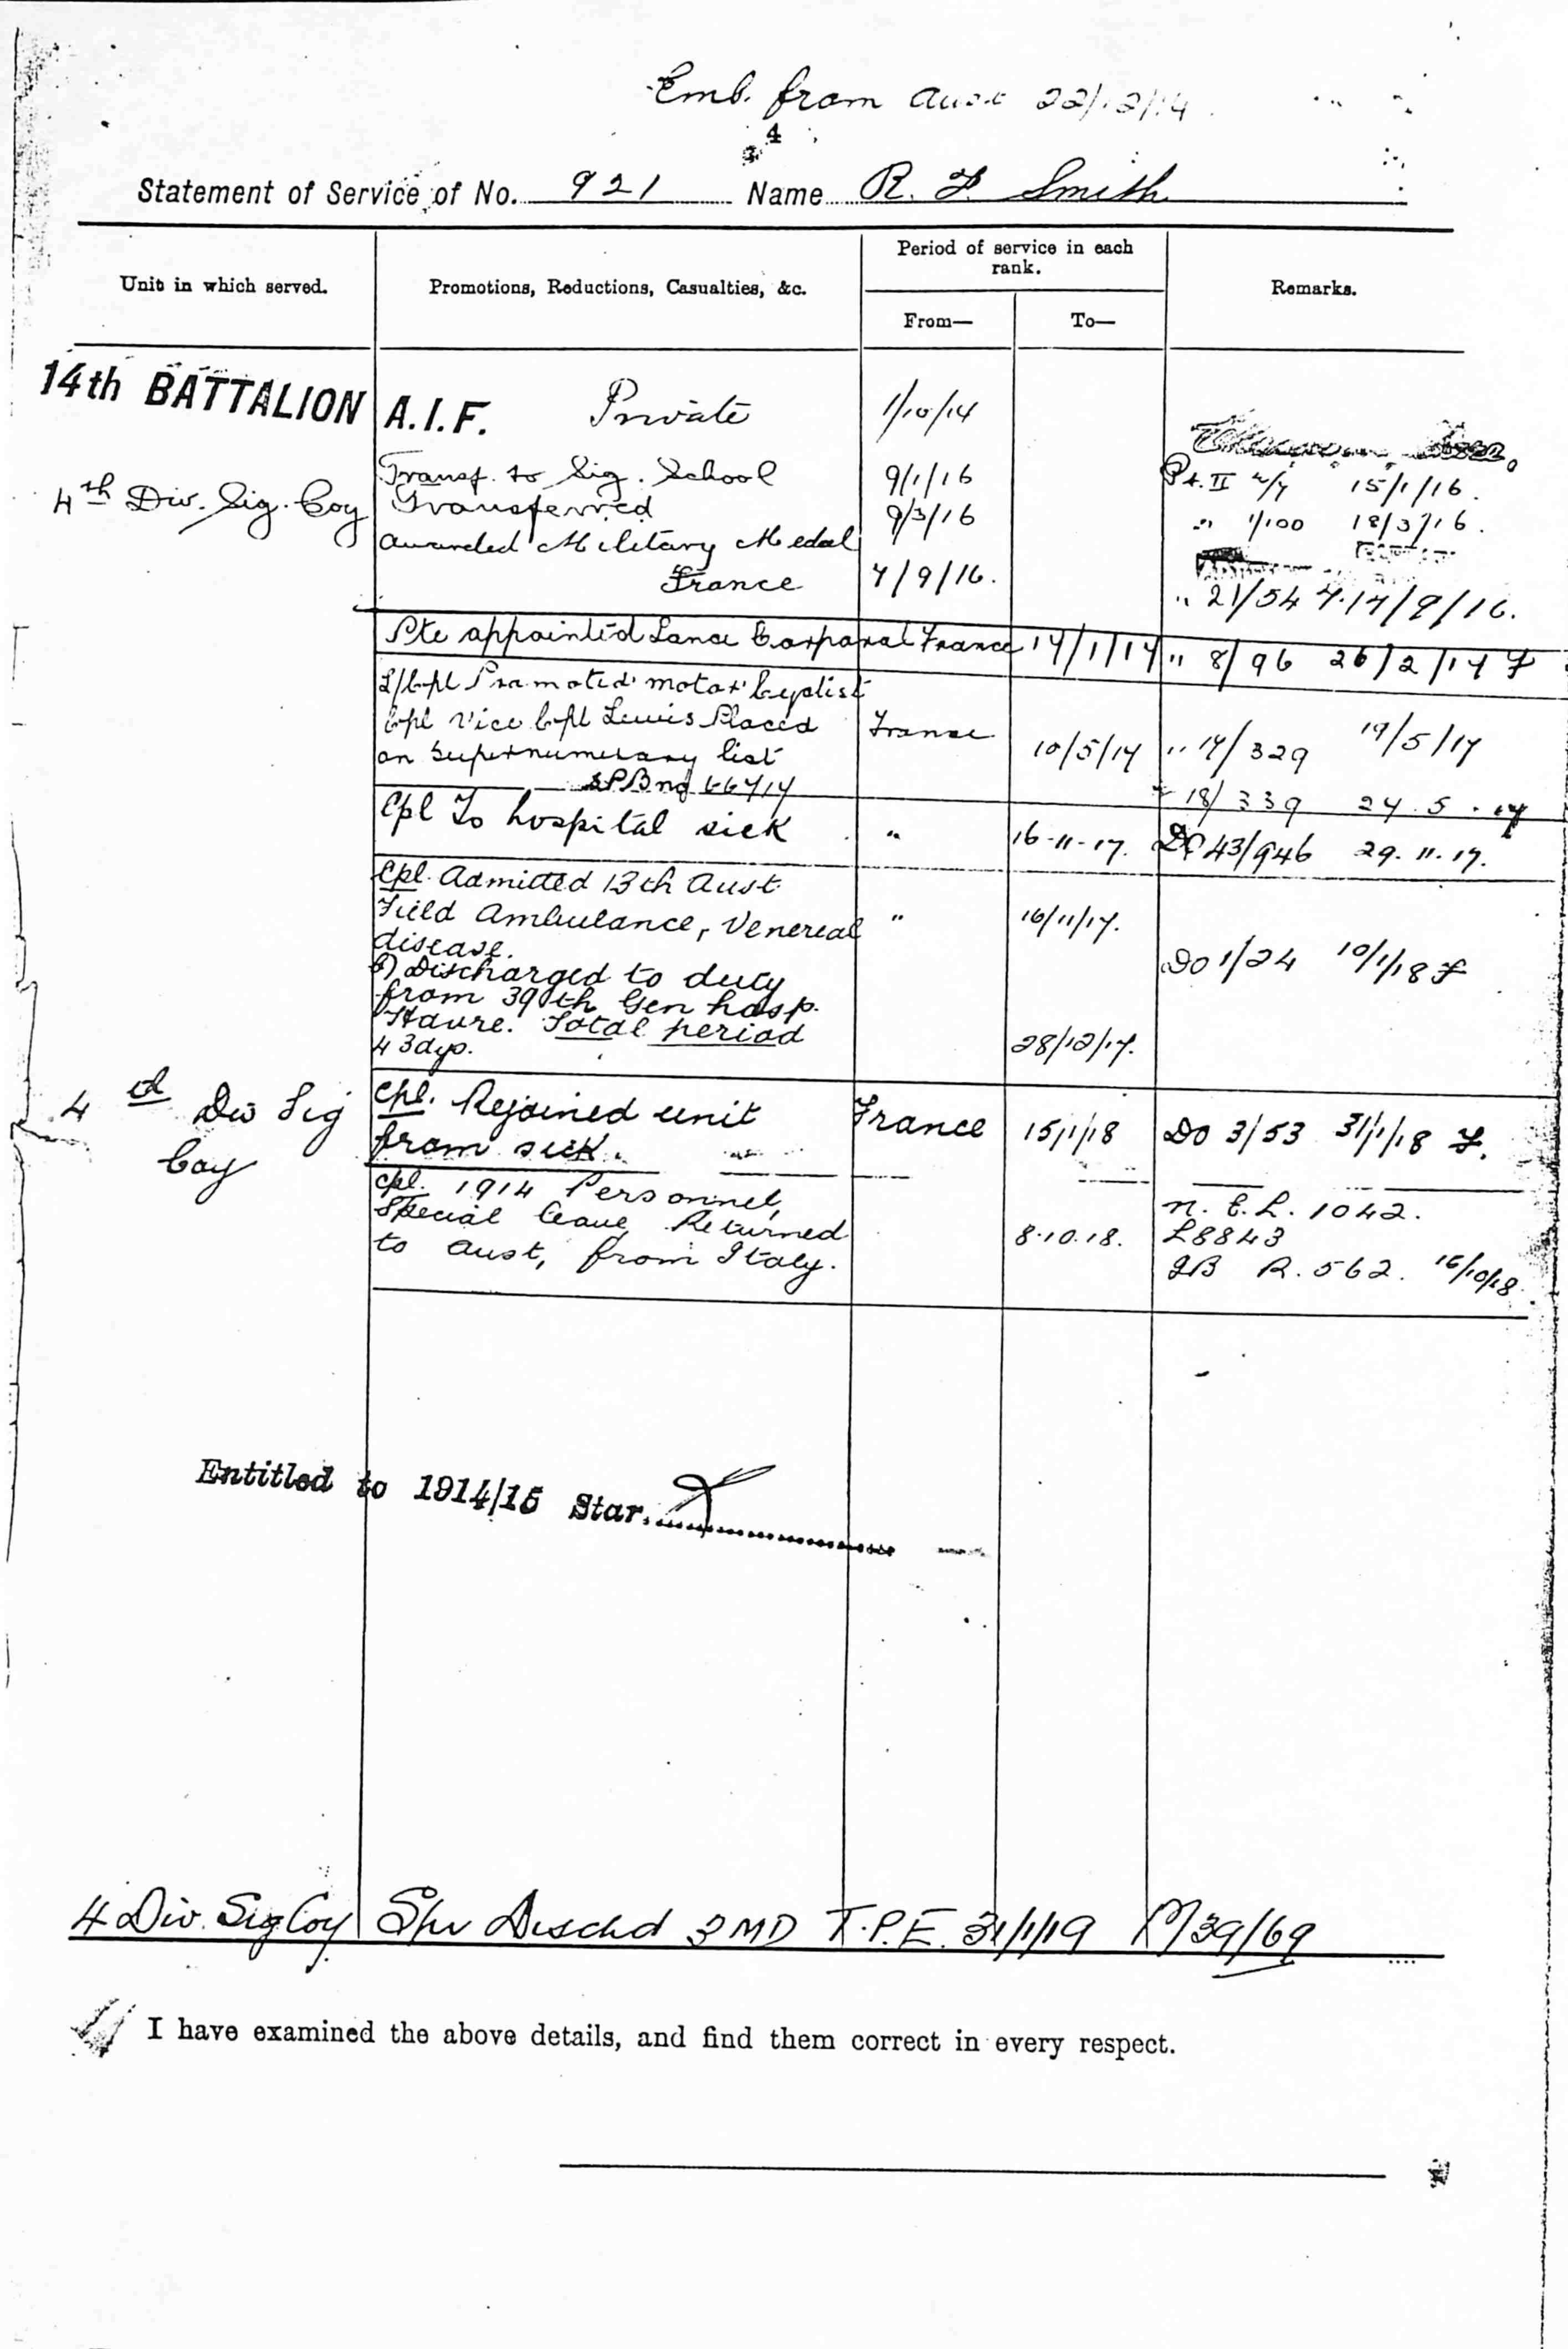 Emb. from Aust 22/12/14
4
Statement of Service of No. 921 Name R. F. Smith
Unit in which served.
Promotions, Reductions, Casualties, &c.
Period of service in each rank.
From—
To—
Remarks.
14th BATTALION A.I.F. Private 1/10/14
Transf. to Sig. School 9/1/16 Pt. II 15/1/16.
4th Div. Sig. Coy Transferred 9/3/16 " 1/100 18/3/16.
Awarded Military Medal
France 7/9/16. " 21/54 17/9/16.
Pte appointed Lance Corporal France 17/1/17 " 8/96 26/2/17 F
L/Cpl Promoted motor Cyclist
Cpl Vice Cpl Lewis Placed France 19/5/17
on Supernumerary list 10/5/17 " 17/329
18/339 24.5.17
Cpl To hospital sick " 16-11-17. DO 43/946 29.11.17.
Cpl. Admitted 13th Aust
Field Ambulance, Venereal " 16/11/17.
disease.
Discharged to duty DO 1/24 10/1/18 F
from 39th Gen hosp.
Havre. Total period
43dys. 28/12/17.
4th Div Sig Cpl. Rejoined unit France 15/1/18 DO 3/53 31/1/18 F.
Coy from sick.
Cpl. 1914 Personnel, N.E.L. 1042.
Special leave Returned 8.10.18. L8843
to Aust, from Italy. R.562. 16/10/18
Entitled to 1914/15 Star.
4 Div. Sig Coy Spr Dischd 3MD T.P.E. 31/1/19 39/69
I have examined the above details, and find them correct in every respect.